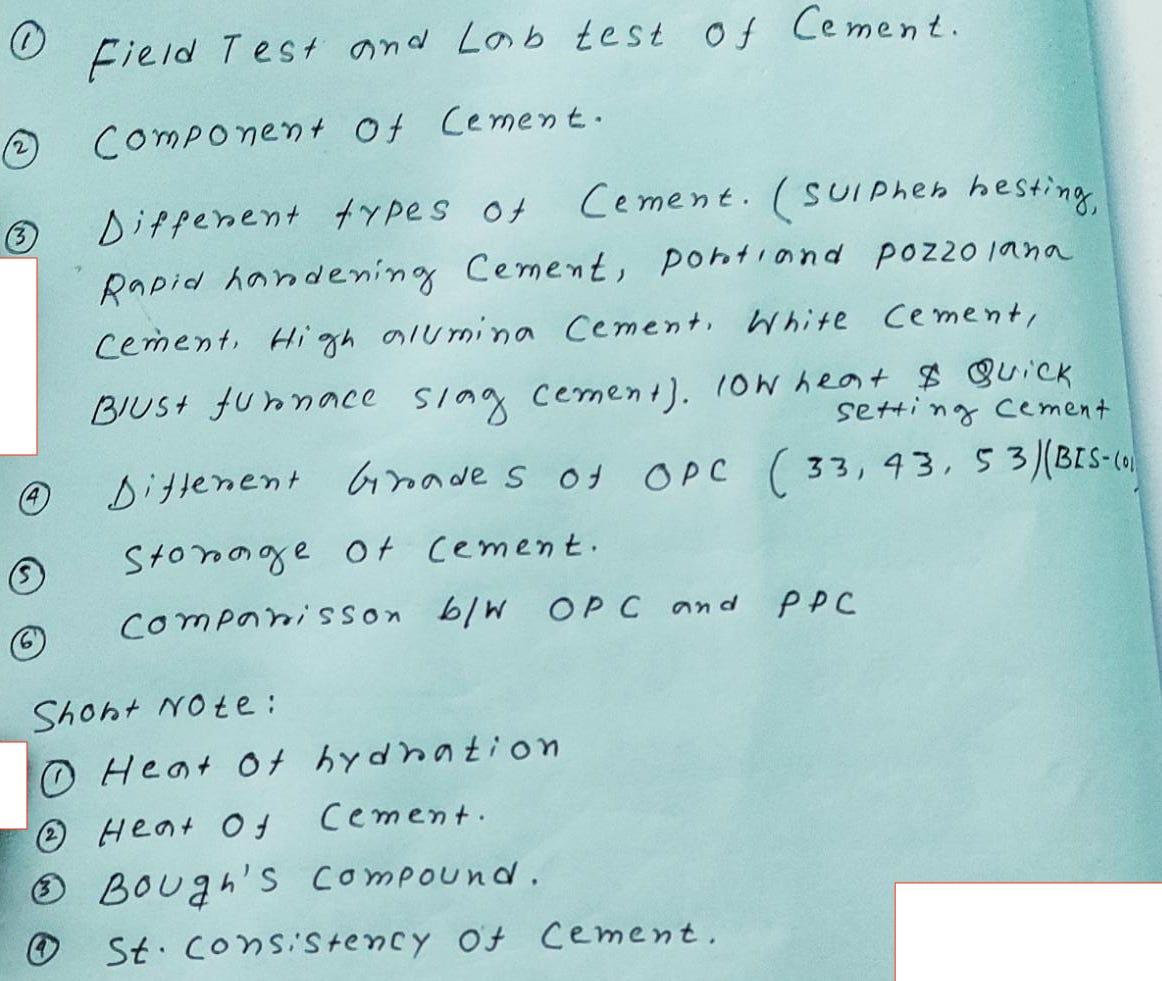 ① Field Test and Lab test of Cement.
② Component of Cement.
③ Different types of Cement. (Sulpher resting,
Rapid hardening Cement, portland pozzolana
cement, High alumina Cement, White Cement,
Blust furnace slag cement). low heat & Quick
setting cement
④ Different Grades of OPC (33, 43, 53)(BIS-
⑤ Storage of Cement.
⑥ Comparisson b/w OPC and PPC
Short Note:
① Heat of hydration
② Heat of Cement.
③ Bough's Compound.
④ St. Consistency of Cement.